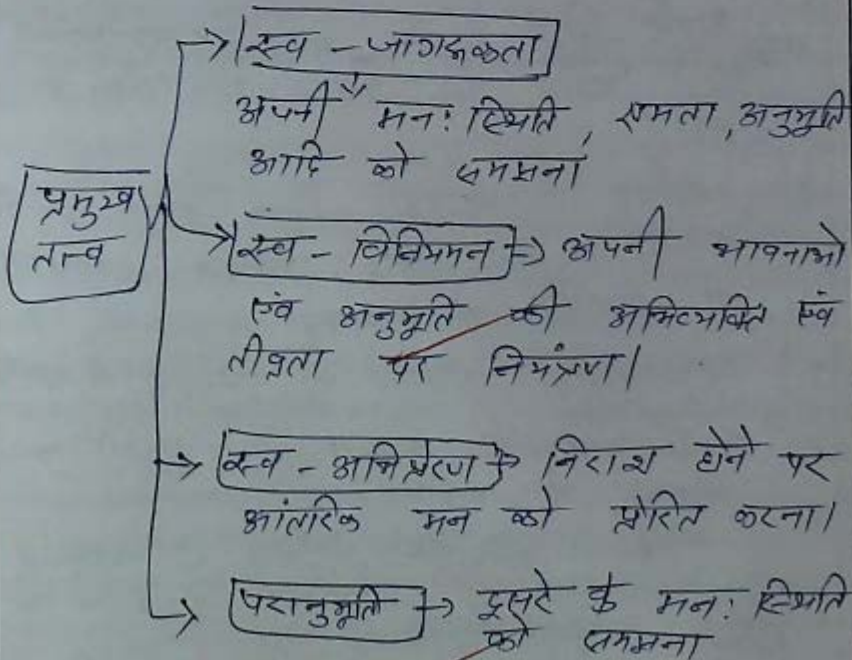 स्व - जागरूकता
अपनी मन: स्थिति, क्षमता, अनुभूति
आदि को समझना
प्रमुख
तत्व
स्व - विनियमन → अपनी भावनाओ
एवं अनुभूति की अभिव्यक्ति एवं
तीव्रता पर नियंत्रण।
स्व - अभिप्रेरण → निराश होने पर
आंतरिक मन को प्रेरित करना।
परानुभूति → दूसरे के मन: स्थिति
को समझना